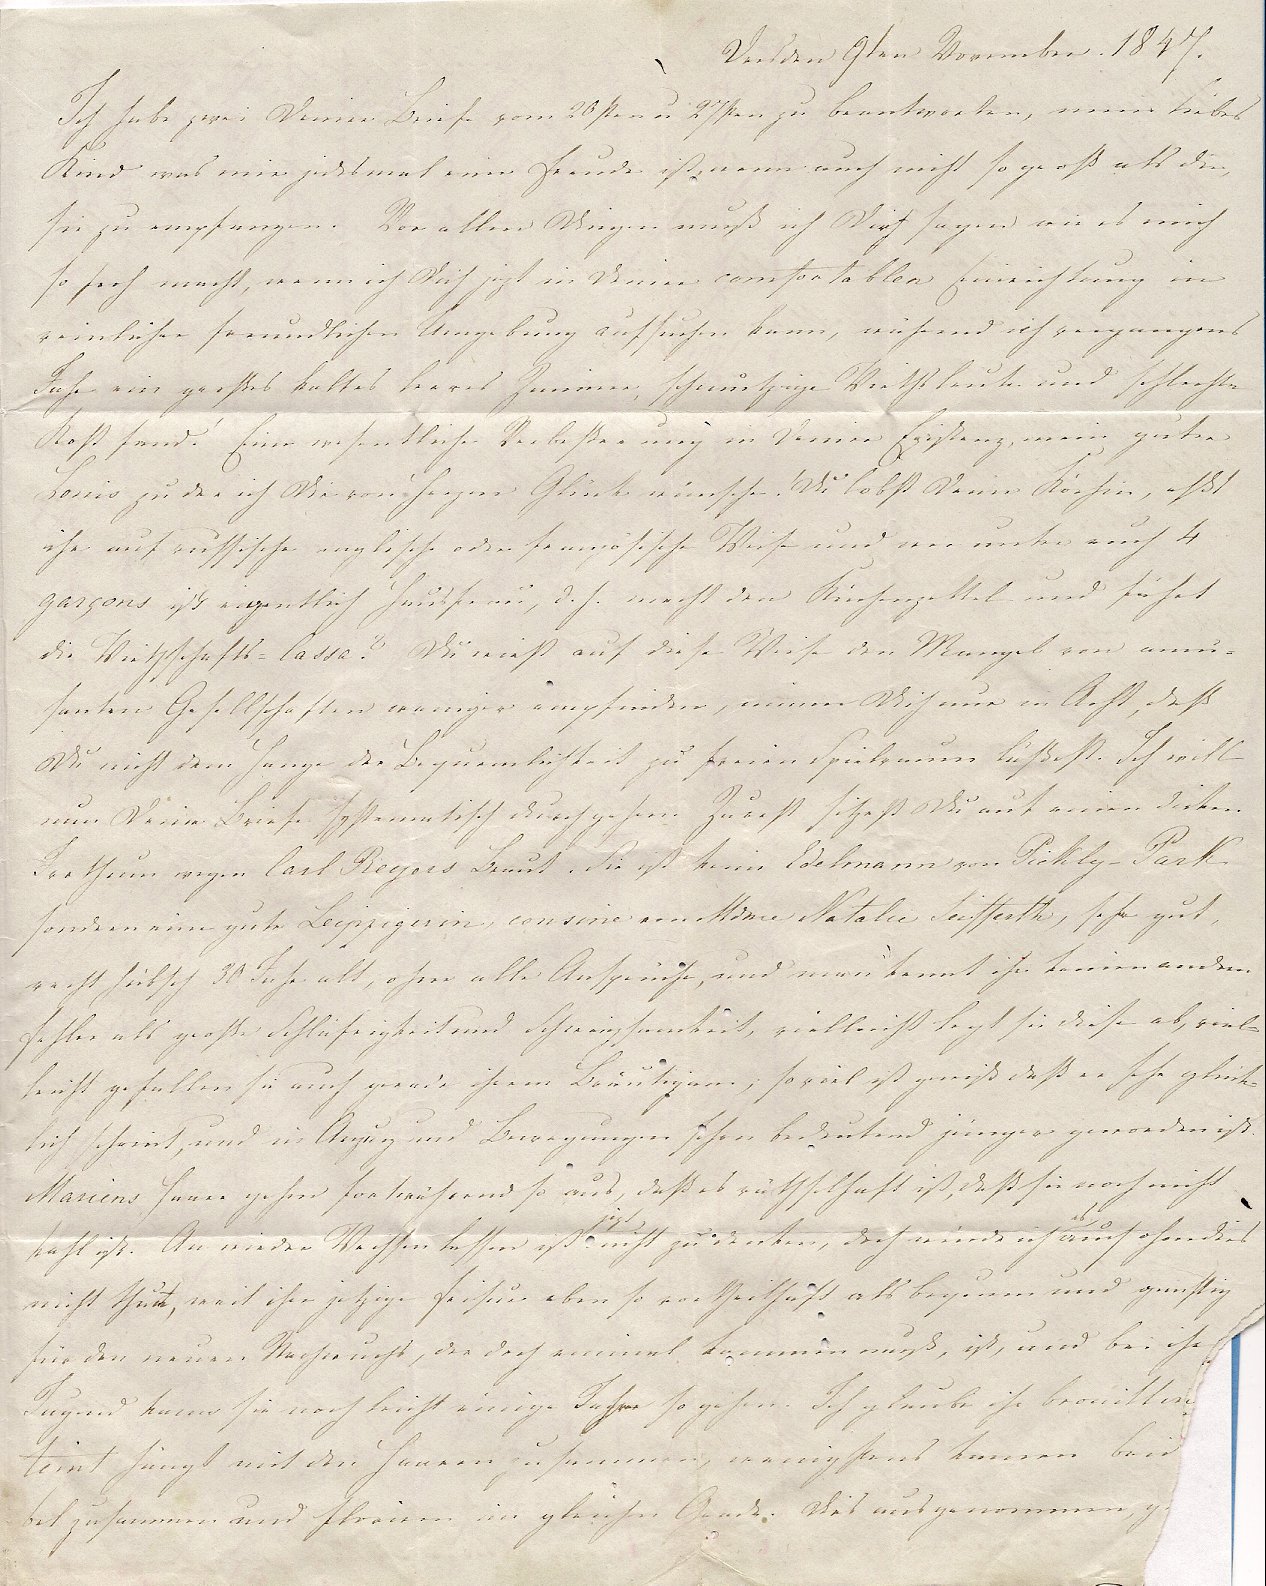 Dresden 9ten November. 1847.
Ich habe zwei Deiner Briefe vom 20sten u 27sten zu beantworten, mein liebes
Kind was mir jedesmal eine Freude ist, wenn auch nicht so groß als die,
sie zu empfangen. Vor allen Dingen muß ich Dir sagen wie es mich
so froh macht, wenn ich Dich jezt in Deiner comfortablen Einrichtung in
reinlicher freundlicher Umgebung aufsuchen kann, während ich vergangenes
Jahr ein großes kaltes leeres Zimmer, schmutzige Wirthsleute und schlechte
Kost fand! Eine wesentliche Verbesserung in Deiner Existenz, mein guter
Louis zu der ich Dir von Herzen Glück wünsche! Du lobst Deine Köchin, eßt
ihr auf russische englische oder französische Weise und wer unter euch 4
garçons ist eigentlich Hausfrau, d.h. macht den Küchenzettel und führt
die Wirthschafts=Cassa? Du wirst auf diese Weise den Mangel von amü=
santen Gesellschaften weniger empfinden, nimm Dich nur in Acht, daß
Du nicht dem Hange der Bequemlichkeit zu freien Spielraum läßest. Ich will
nun Deine Briefe systematisch durchgehen. Zuerst sitzest Du auf einen dicken
Irrthum wegen Carl Reyers Braut. Sie ist kein Edelmann von Pickly-Park
sondern eine gute Leipzigerin, cousine von Mdme Natalie Seifferth, sehr gut,
recht hübsch 30 Jahr alt, ohne alle Ansprüche, und man kennt ihr keinen andern
Fehler als große Schläfrigkeit und Schweigsamkeit, vielleicht legt sie diese ab, viel=
leicht gefallen sie auch gerade ihrem Bräutigam; so viel ist gewiß daß er sehr glück=
lich scheint, und in Anzug und Bewegungen schon bedeutend jünger geworden ist.
Mariens Haare gehen fortwährend so aus, daß es räthselhaft ist, daß sie noch nicht
kahl ist. An wieder Wachsen lassen ist jezt nicht zu denken, doch würde ich es auch ohne dies
nicht thun, weil ihre jetzige Frisur eben so vortheilhaft als bequem und günstig
für den neuen Nachwuchs, der doch einmal kommen muß, ist, und bei ihrer
Jugend kann sie noch leicht einige Jahre so gehen. Ich glaube ihr brouillirter
teint hängt mit den Haaren zusammen, wenigstens kamen beide
bel zusammen und floriren im gleichen Grade. Dies ausgenommen,